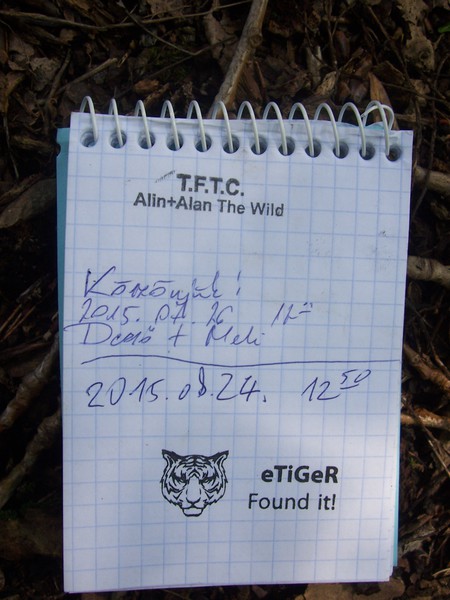 T.F.T.C.
Alin+Alan The Wild
Köszönjük!
2015. 07. 26
Dezső + Meli
2015.08.24. 12 50
eTiGeR
Found it!